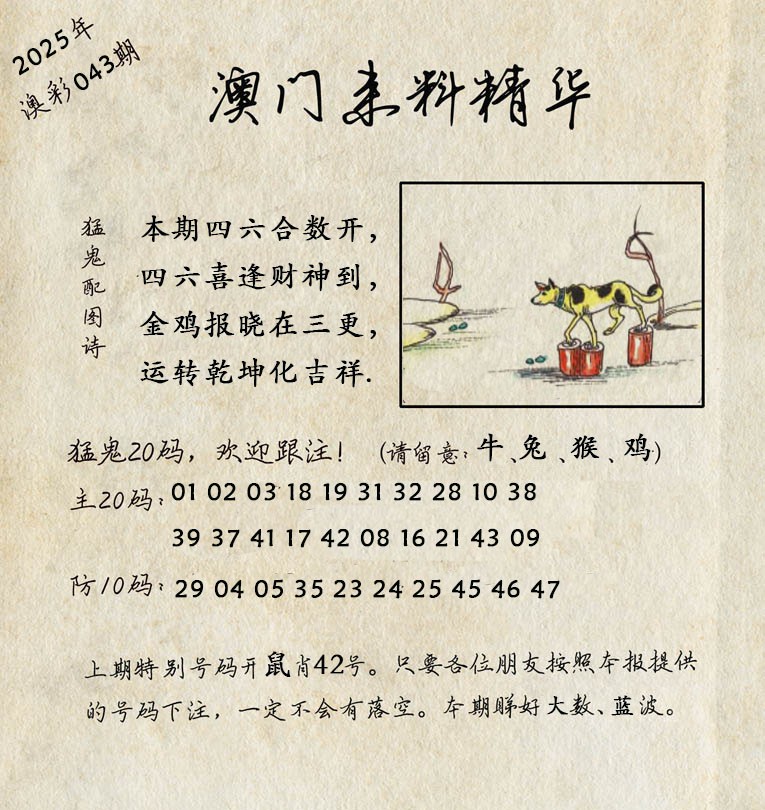 2025年
澳彩043期
澳门来料精华
猛鬼配图诗
本期四六合数开，
四六喜逢财神到，
金鸡报晓在三更，
运转乾坤化吉祥.
猛鬼20码，欢迎跟注！（请留意：牛、兔、猴、鸡）
主20码：01 02 03 18 19 31 32 28 10 38
39 37 41 17 42 08 16 21 43 09
防10码：29 04 05 35 23 24 25 45 46 47
上期特别号码开鼠肖42号。只要各位朋友按照本报提供
的号码下注，一定不会有落空。本期睇好大数、蓝波。